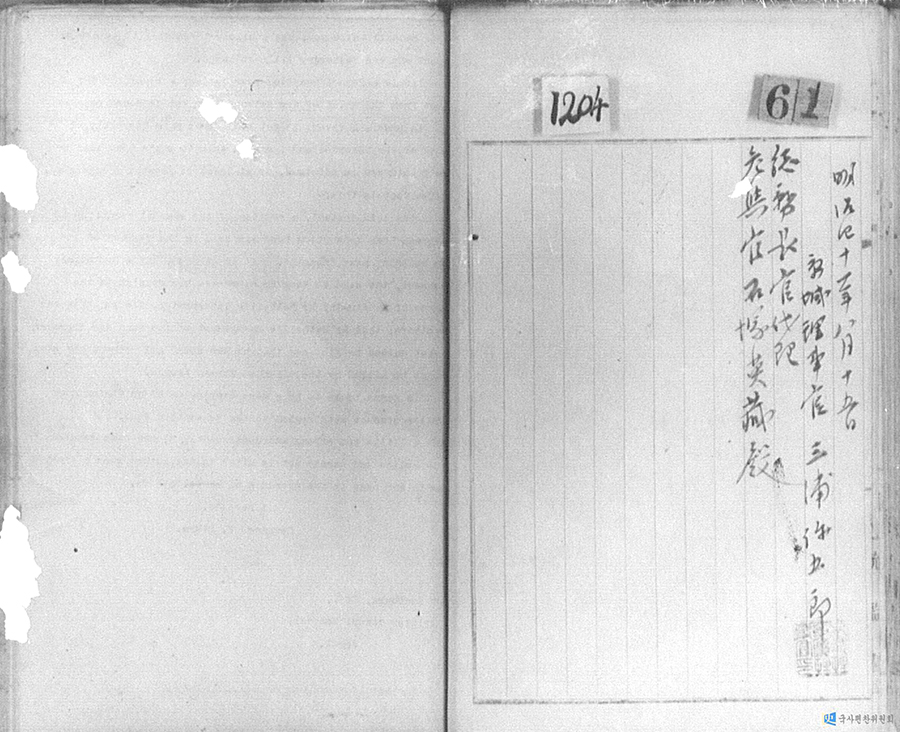 1204
61
明治四十一年八月十五日
京城理事官 三浦弥五郎
総務長官代理
参与官石塚英藏殿
국사편찬위원회